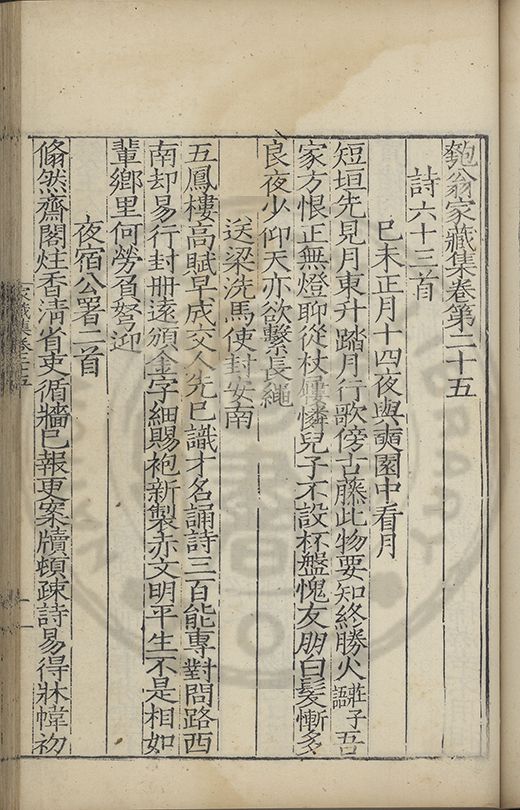 匏翁家藏集卷第二十五
詩六十三首
己未正月十四夜與奭園中看月
短垣先見月東升踏月行歌傍古藤此物要知終勝火莊子語吾
家方恨正無燈聊從杖屨憐兒子不設杯盤愧友朋白髮慚多
良夜少仰天亦欲繫長繩
送梁洗馬使封安南
五鳳樓高賦早成交人先已識才名誦詩三百能專對問路西
南却易行封册遠頒金字細賜袍新製赤文明平生不是相如
輩鄉里何勞負弩迎
夜宿公署二首
翛然齋閣炷香淸省吏循牆已報更案牘頓疎詩易得牀幃初